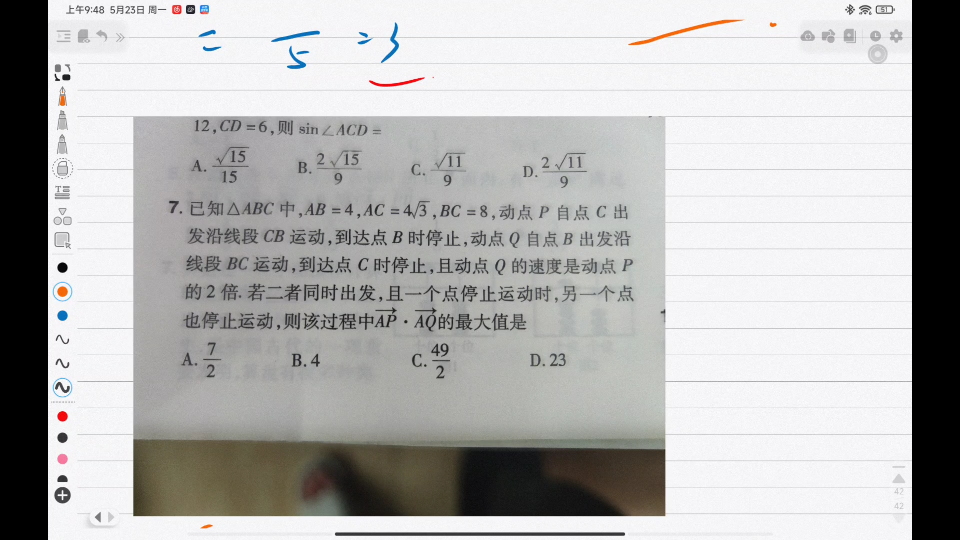 上午9:48 5月23日 周一
51
= 5 =3
12,CD=6,则 sin∠ACD=
A. √15/15 B. 2√15/9 C. √11/9 D. 2√11/9
7. 已知△ABC 中,AB=4,AC=4√3,BC=8,动点 P 自点 C 出
发沿线段 CB 运动,到达点 B 时停止,动点 Q 自点 B 出发沿
线段 BC 运动,到达点 C 时停止,且动点 Q 的速度是动点 P
的 2 倍. 若二者同时出发,且一个点停止运动时,另一个点
也停止运动,则该过程中 \overrightarrow{AP}·\overrightarrow{AQ} 的最大值是
A. 7/2 B. 4 C. 49/2 D. 23
42
42